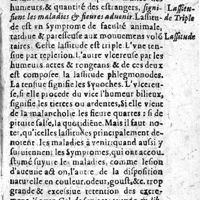 humeurs, & quantité des estrangers, signi-
fient les maladies & fieures aduenir. Lassitu- Lassitu-
de est vn Symptome de faculté animale, de Triple
tardiue & paresseuse aux mouuemens volõ Lassitude
taires. Ceste lassitude est triple L'vne ten-
siue par repletion. L'autre vlcereuse par les
humeurs actes & rongeans & de ces deux
est composee la lassitude phlegmonodes.
La tensiue signifie les Synoches. L'vlcereu-
se, si elle procede du vice d'humeur bilieux,
signifie les tierces ou ardentes, Si elle vient
de la malancholie les fieure quartes: si de
pituite salse, la quotidiẽne. Mais faut no-
ter, qu'icelles lassitudes principalement de-
notent les maladies à venir, quand aussi y
suruiennent les Symptomes, qui ont accou
stumé suyure les maladies, comme lesion
d'aucune action, l'autre de la disposition
naturelle en couleur, odeur, goust, &c. trop
grande & excessiue retention des excre-